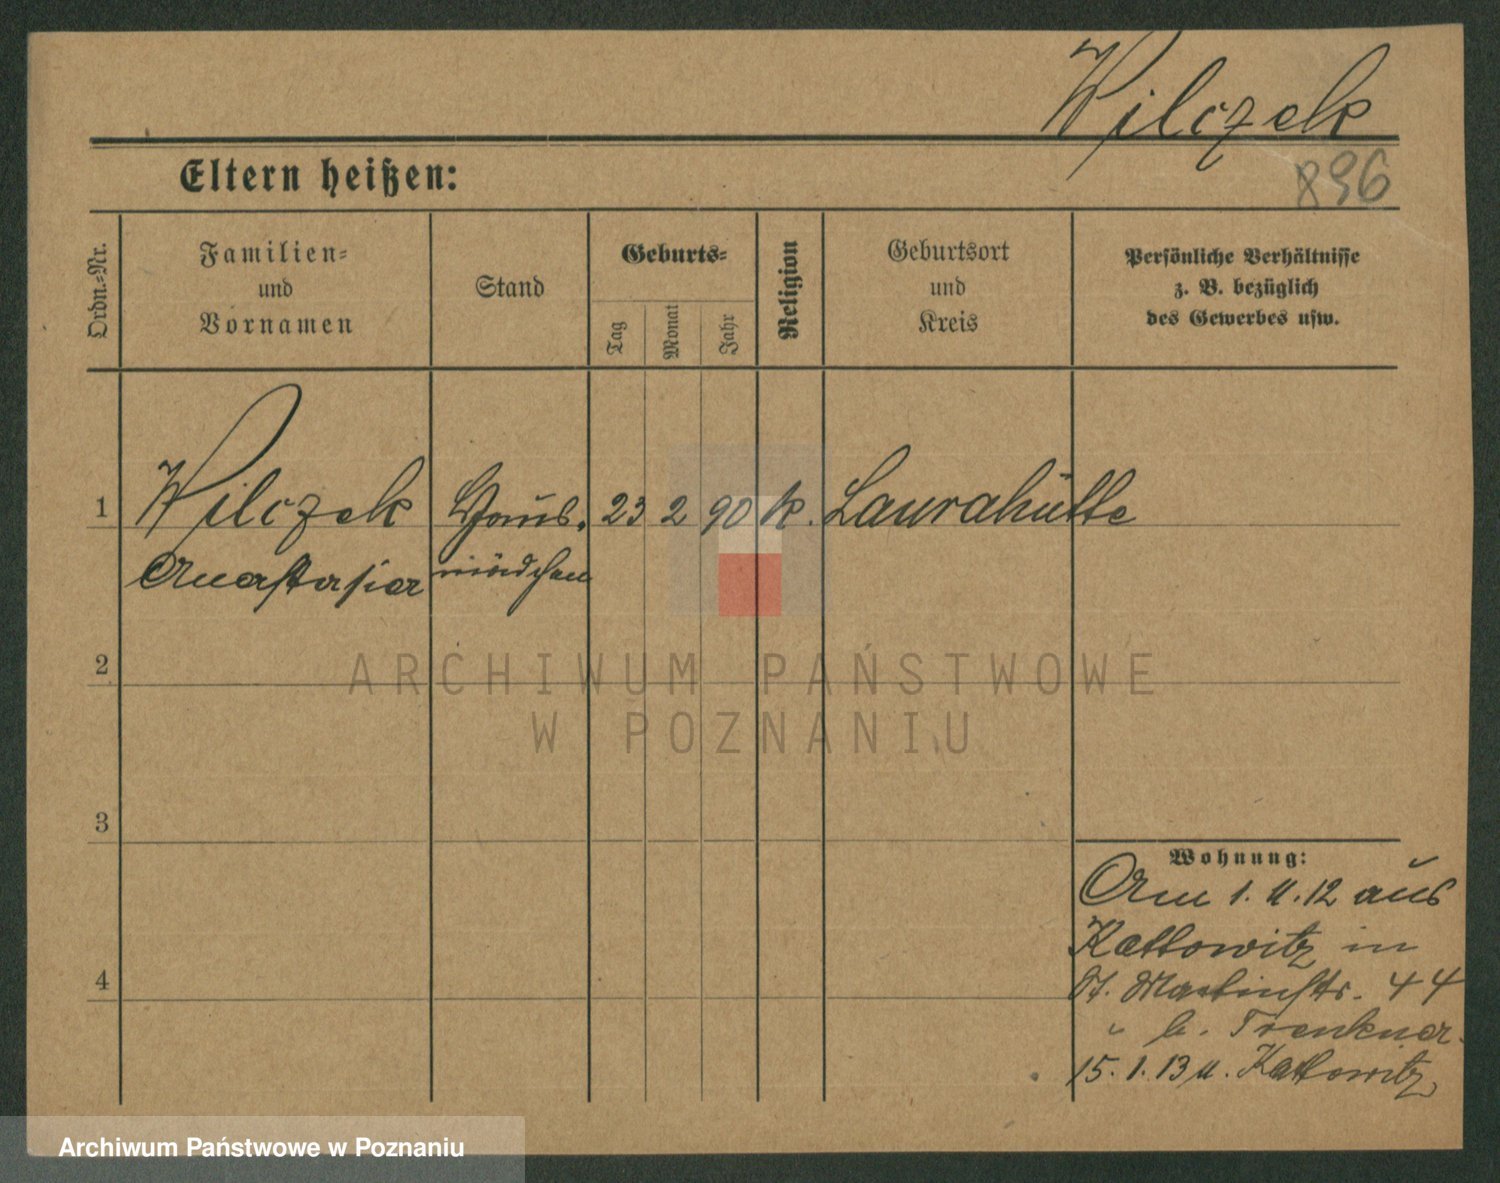 Wilczek
896
Eltern heißen:
Ordn.=Nr.
Familien=
und
Vornamen
Stand
Geburts=
Tag
Monat
Jahr
Religion
Geburtsort
und
Kreis
Persönliche Verhältnisse
z. B. bezüglich
des Gewerbes usw.
1 Wilczek Haus- 23 2 90 k. Laurahütte
Anastasia mädchen
2
ARCHIWUM PAŃSTWOWE
W POZNANIU
3
Wohnung:
Am 1. 11. 12 aus
Kattowitz in
4
St. Martinstr. 44
" b. Trenkner.
15. 1. 13 n. Kattowitz
Archiwum Państwowe w Poznaniu